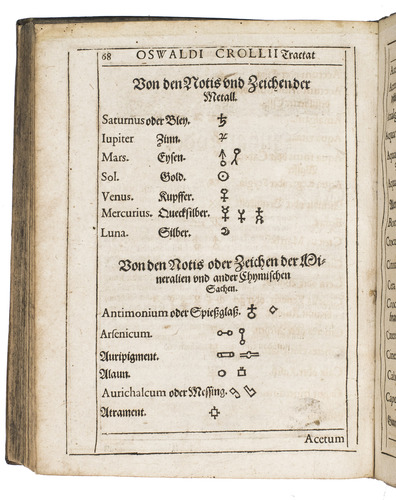 68 OSWALDI CROLLII Tractat
Von den Notis vnd Zeichen der
Metall.
Saturnus oder Bley. ♄
Iupiter Zinn. ♃
Mars. Eysen. ♂
Sol. Gold. ☉
Venus. Kupffer. ♀
Mercurius. Quecksilber. ☿
Luna. Silber. ☽
Von den Notis oder Zeichen der Mi-
neralien vnd ander Chymischen
Sachen.
Antimonium oder Spießglaß. ♁ ◇
Arsenicum.
Auripigment.
Alaun.
Aurichalcum oder Messing.
Atrament.
Acetum